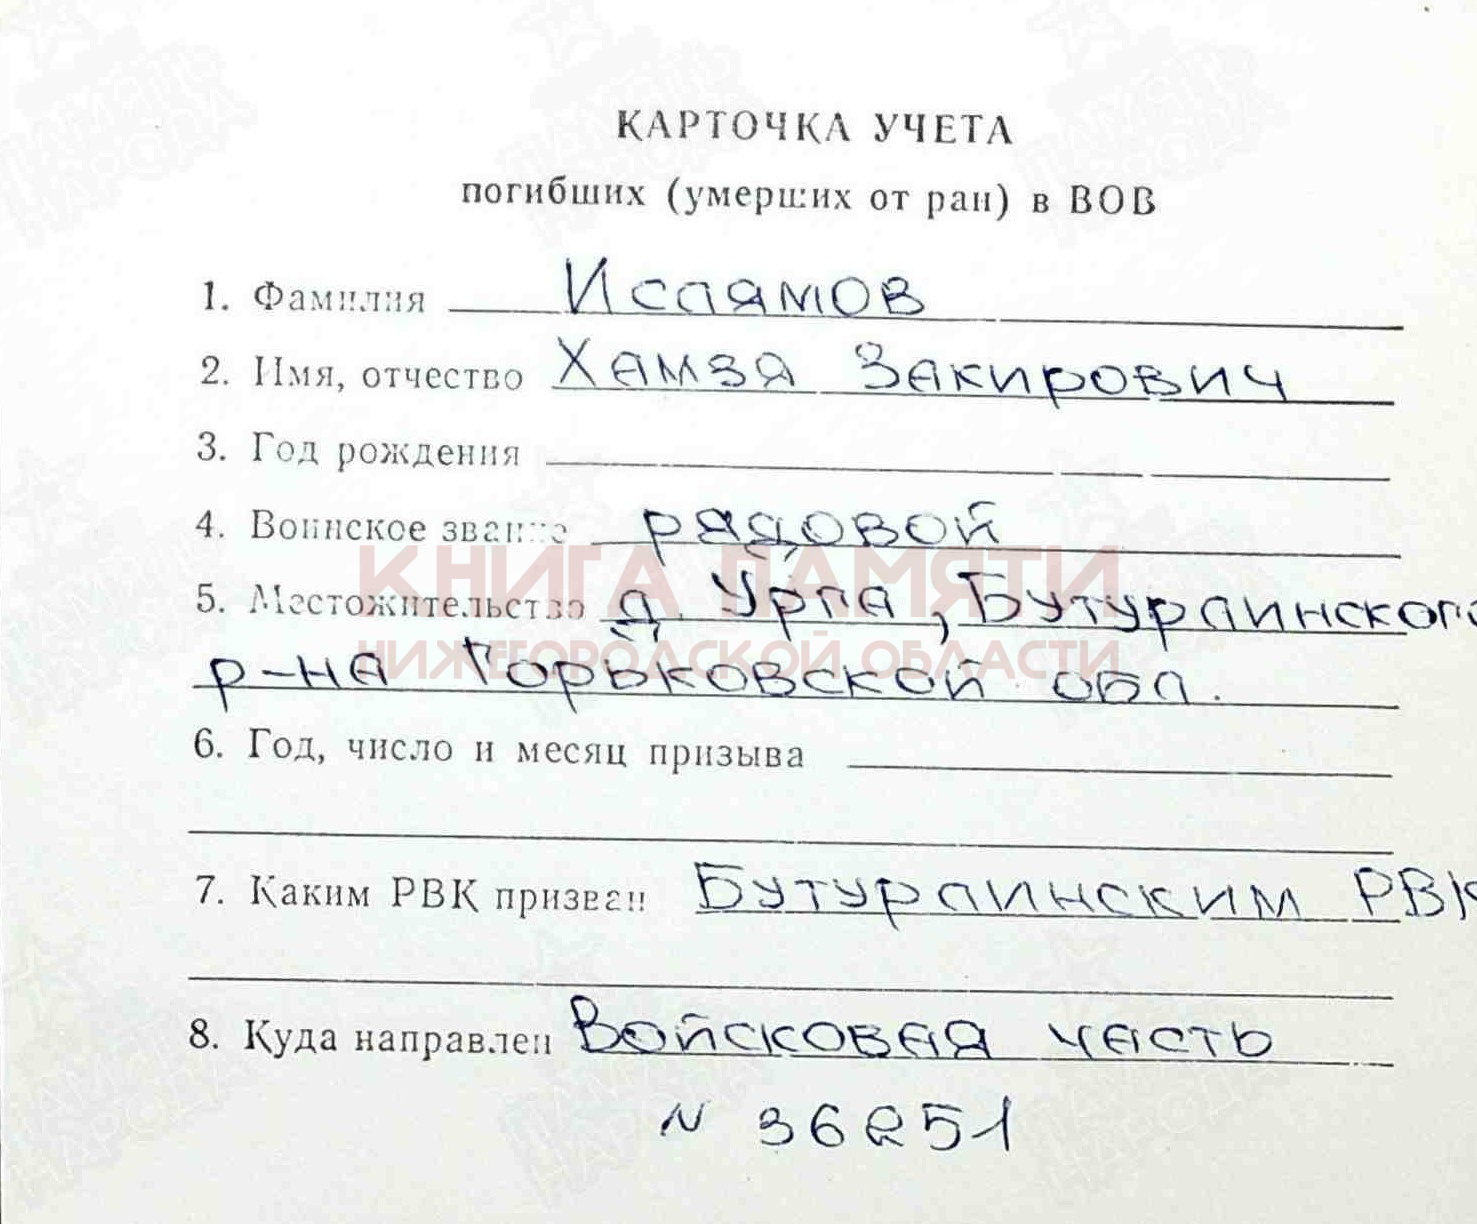 КАРТОЧКА УЧЕТА
погибших (умерших от ран) в ВОВ
1. Фамилия Ислямов
2. Имя, отчество Хамзя Закирович
3. Год рождения
4. Воинское звание рядовой
КНИГА ПАМЯТИ
5. Местожительство д. Урга, Бутурлинского
НИЖЕГОРОДСКОЙ ОБЛАСТИ
р-на Горьковской обл.
6. Год, число и месяц призыва
7. Каким РВК призван Бутурлинским РВК
8. Куда направлен Войсковая часть
N 36251